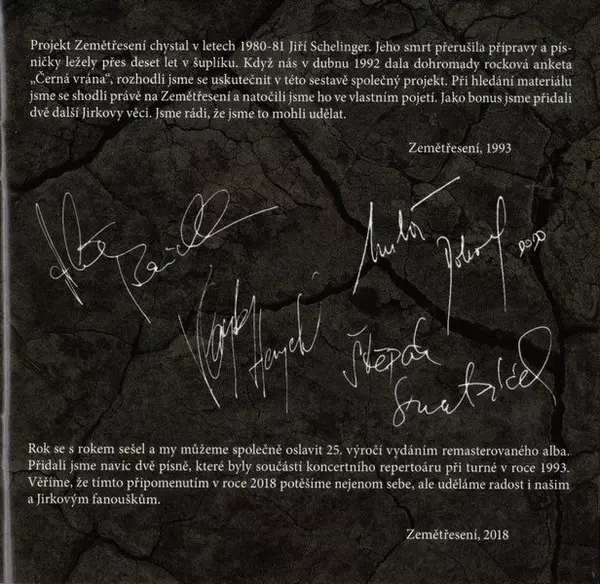 Projekt Zemětřesení chystal v letech 1980-81 Jiří Schelinger. Jeho smrt přerušila přípravy a pís-
ničky ležely přes deset let v šuplíku. Když nás v dubnu 1992 dala dohromady rocková anketa
„Černá vrána“, rozhodli jsme se uskutečnit v této sestavě společný projekt. Při hledání materiálu
jsme se shodli právě na Zemětřesení a natočili jsme ho ve vlastním pojetí. Jako bonus jsme přidali
dvě další Jirkovy věci. Jsme rádi, že jsme to mohli udělat.
Zemětřesení, 1993
Štěpán
Rok se s rokem sešel a my můžeme společně oslavit 25. výročí vydáním remasterovaného alba.
Přidali jsme navíc dvě písně, které byly součástí koncertního repertoáru při turné v roce 1993.
Věříme, že tímto připomenutím v roce 2018 potěšíme nejenom sebe, ale uděláme radost i našim
a Jirkovým fanouškům.
Zemětřesení, 2018